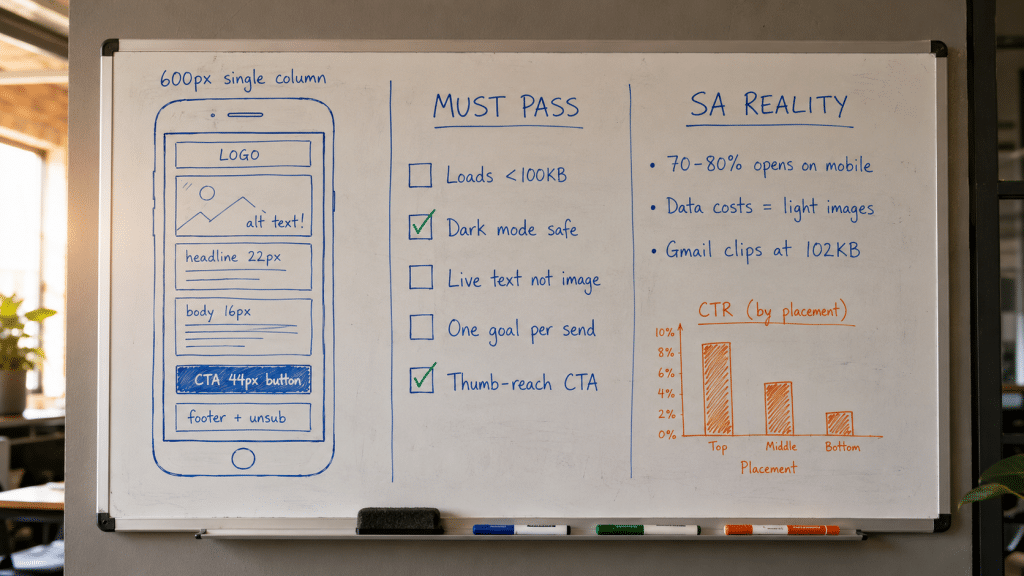 600px single column
LOGO
alt text!
headline 22px
body 16px
CTA 44px button
footer + unsub
MUST PASS
Loads <100KB
Dark mode safe
Live text not image
One goal per send
Thumb-reach CTA
SA REALITY
• 70-80% opens on mobile
• Data costs = light images
• Gmail clips at 102KB
CTR (by placement)
10%
8%
6%
4%
2%
0%
Top Middle Bottom
Placement